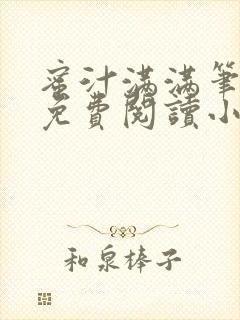 蜜汁满满筆
免費閱讀小
和泉棒子